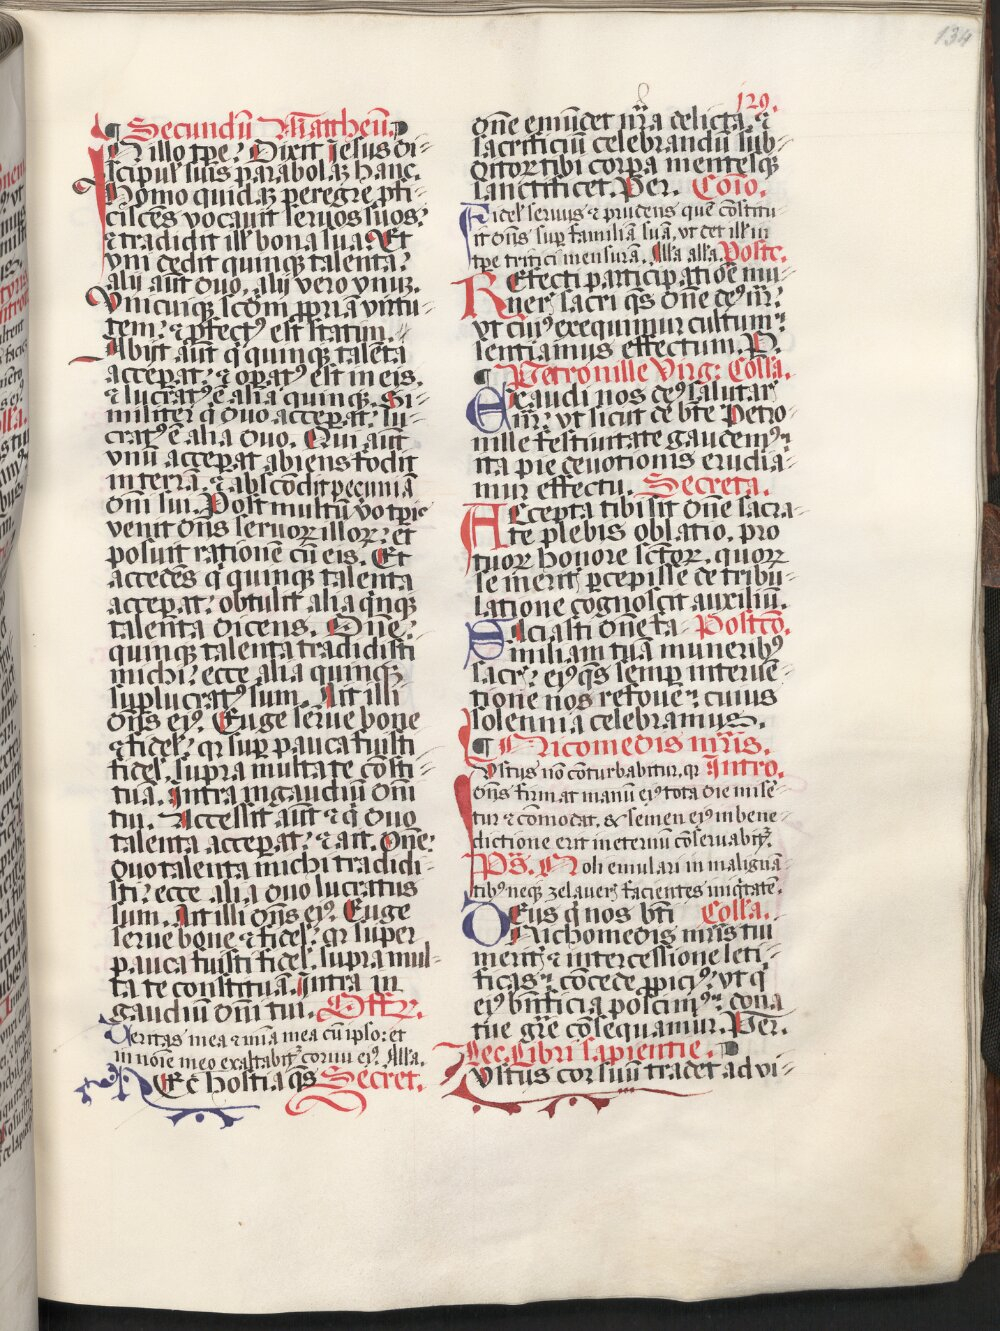 134
129.
¶ Secundũ Mattheũ.
In illo tpe: Dixit Jesus di-
scipul' suis parabolaꝫ hanc.
Homo quidaꝫ peregre pfi-
ciscẽs vocavit seruos suos:
⁊ tradidit ill' bona sua. Et
vni dedit quinqꝫ talenta:
alij aũt duo. alij vero vnuꝫ.
Vnicuiqꝫ scd'm ppriã virtu-
tem: ⁊ pfectꝰ est statim.
Abijt aũt q̇ quinqꝫ talẽta
acceperat: ⁊ opatꝰ est in eis.
⁊ lucratꝰ ẽ alia quinqꝫ. Si-
militer q̇ duo acceperat: lu-
cratꝰ ẽ alia duo. Qui aũt
vnũ acceperat abiens fodit
in terrã: ⁊ abscõdit pecuniã
dñi sui. Post multũ vo tpis
venit dñs seruoꝝ illoꝝ: et
posuit rationẽ cũ eis. Et
accedẽs q̇ quinqꝫ talenta
acceperat: obtulit alia q̇nqꝫ
talenta dicens. Dñe:
quinqꝫ talenta tradidisti
michi: ecce alia quinqꝫ
suplucratꝰ sum. Ait illi
dñs eiꝰ. Euge serue bone
⁊ fidel': qr sup pauca fuisti
fidel'. supra multa te cõsti-
tuã. Intra in gaudiũ dñi
tui. Accessit aũt ⁊ q̇ duo
talenta acceperat: ⁊ ait. Dñe:
duo talenta michi tradidi-
sti: ecce alia duo lucratus
sum. Ait illi dñs eiꝰ. Euge
serue bone ⁊ fidel': qr super
pauca fuisti fidel'. supra mul-
ta te constituã. Intra in
gaudiũ dñi tui. Offr.
Veritas mea ⁊ mĩa mea cũ ipso: et
in noĩe meo exaltabitꝛ cornu eiꝰ. Alla.
Hec hostia q̃s Secret.
dñe emũdet nr̃a delicta: ⁊
sacrificiũ celebrandũ sub-
ditoꝝ tibi corpa mentesqꝫ
sanctificet. Per. Cõio.
Fidel' seruus ⁊ prudens quẽ cõstitu-
it dñs sup familiã suã, vt det ill' in
tpe tritici mensurã. Alla alla. Postc.
Refecti participatiõe mu-
neris sacri q̃s dñe deꝰ nr̃:
vt cuiꝰ exequimur cultum:
sentiamus effectum. P.
¶ Petronille Virg: Colla.
Exaudi nos deꝰ salutar'
nr̃: vt sicut de bte Petro-
nille festiuitate gaudemꝰ:
ita pie deuotionis erudia-
mur effectu. Secreta.
Accepta tibi sit dñe sacra-
te plebis oblatio. pro
tuoꝝ honore sctoꝝ. quoꝝ
se merit' pcepisse de tribu-
latione cognoscit auxiliũ.
Saciasti dñe fa- Postcõ.
miliam tuã muneribꝰ
sacr': eiꝰ q̃s semp interuẽ-
tione nos refoue: cuius
solennia celebramus.
¶ Nicomedis mr̃is.
Iustus nõ cõturbabitur. qr Intro.
dñs firmat manũ eiꝰ tota die mise-
tur ⁊ cõmodat. & semen eiꝰ in bene-
dictione erit in eternũ cõseruabitꝛ.
Ps. Noli emulari in malignã-
tibꝰ neqꝫ zelaueris facientes iniq̇tatẽ.
Deus q̇ nos bti Colla.
Nichomedis mr̃is tui
merit' ⁊ intercessione leti-
ficas: cõcede ppiciꝰ: vt q̇
eiꝰ bñficia poscimꝰ: dona
tue gre cõsequamur. Per.
Lec. Libri sapientie.
Iustus cor suũ tradet ad vi-